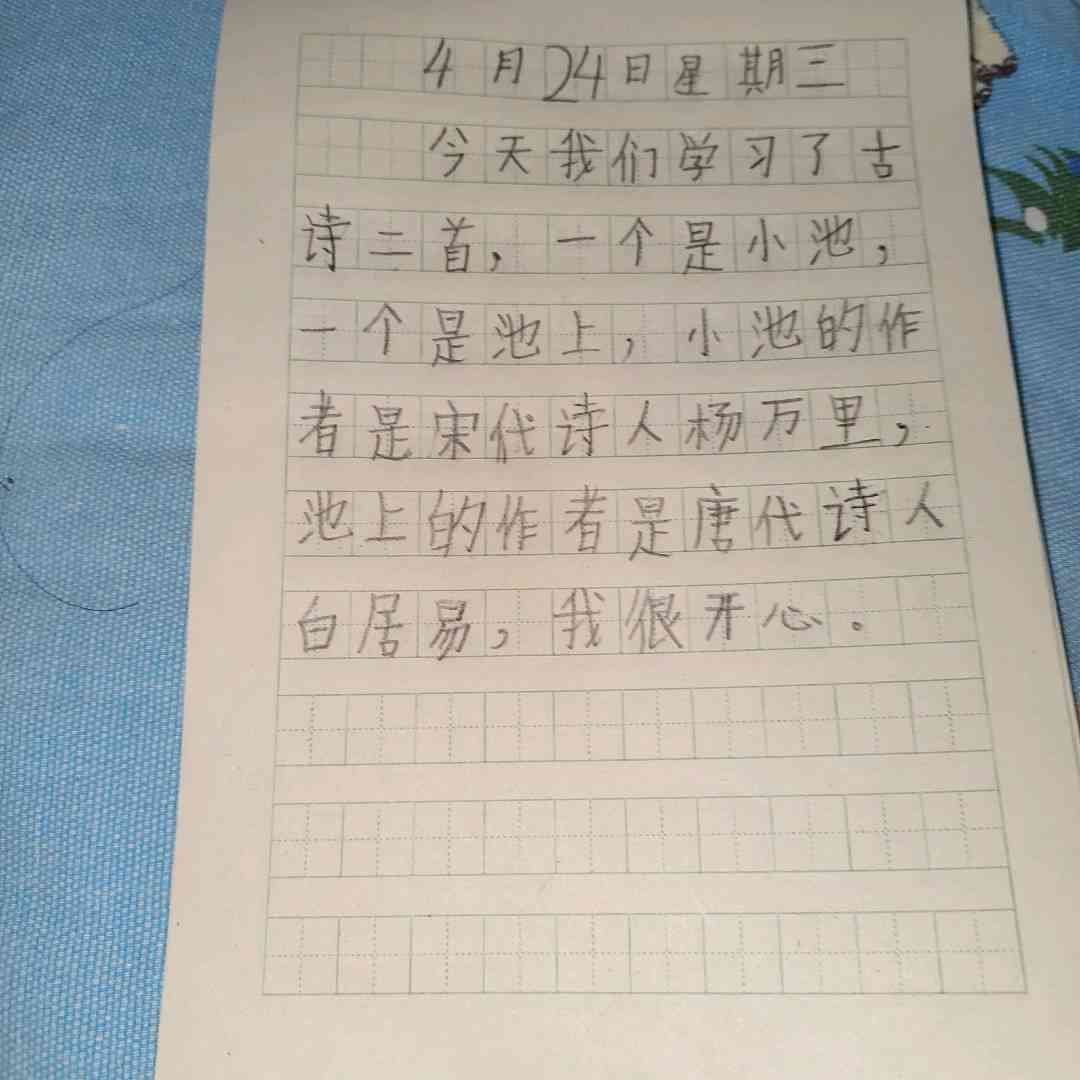 4月24日星期三
今天我们学习了古
诗二首，一个是小池，
一个是池上，小池的作
者是宋代诗人杨万里，
池上的作者是唐代诗人
白居易，我很开心。